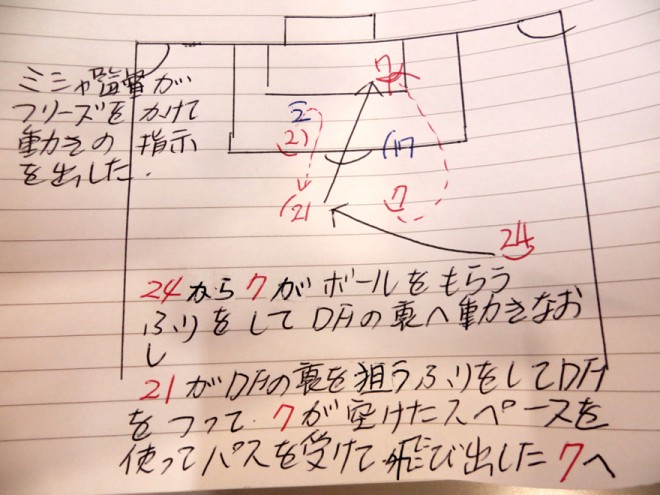 ミシャ監督が
フリーズをかけて
動きの指示
を出した.
7
2
(21)
(17
(21
7
24
24から7がボールをもらう
ふりをしてDFの裏へ動きなお
し
21がDFの裏を狙うふりをしてDF
をつって.7が空けたスペースを
使ってパスを受けて飛び出した7へ